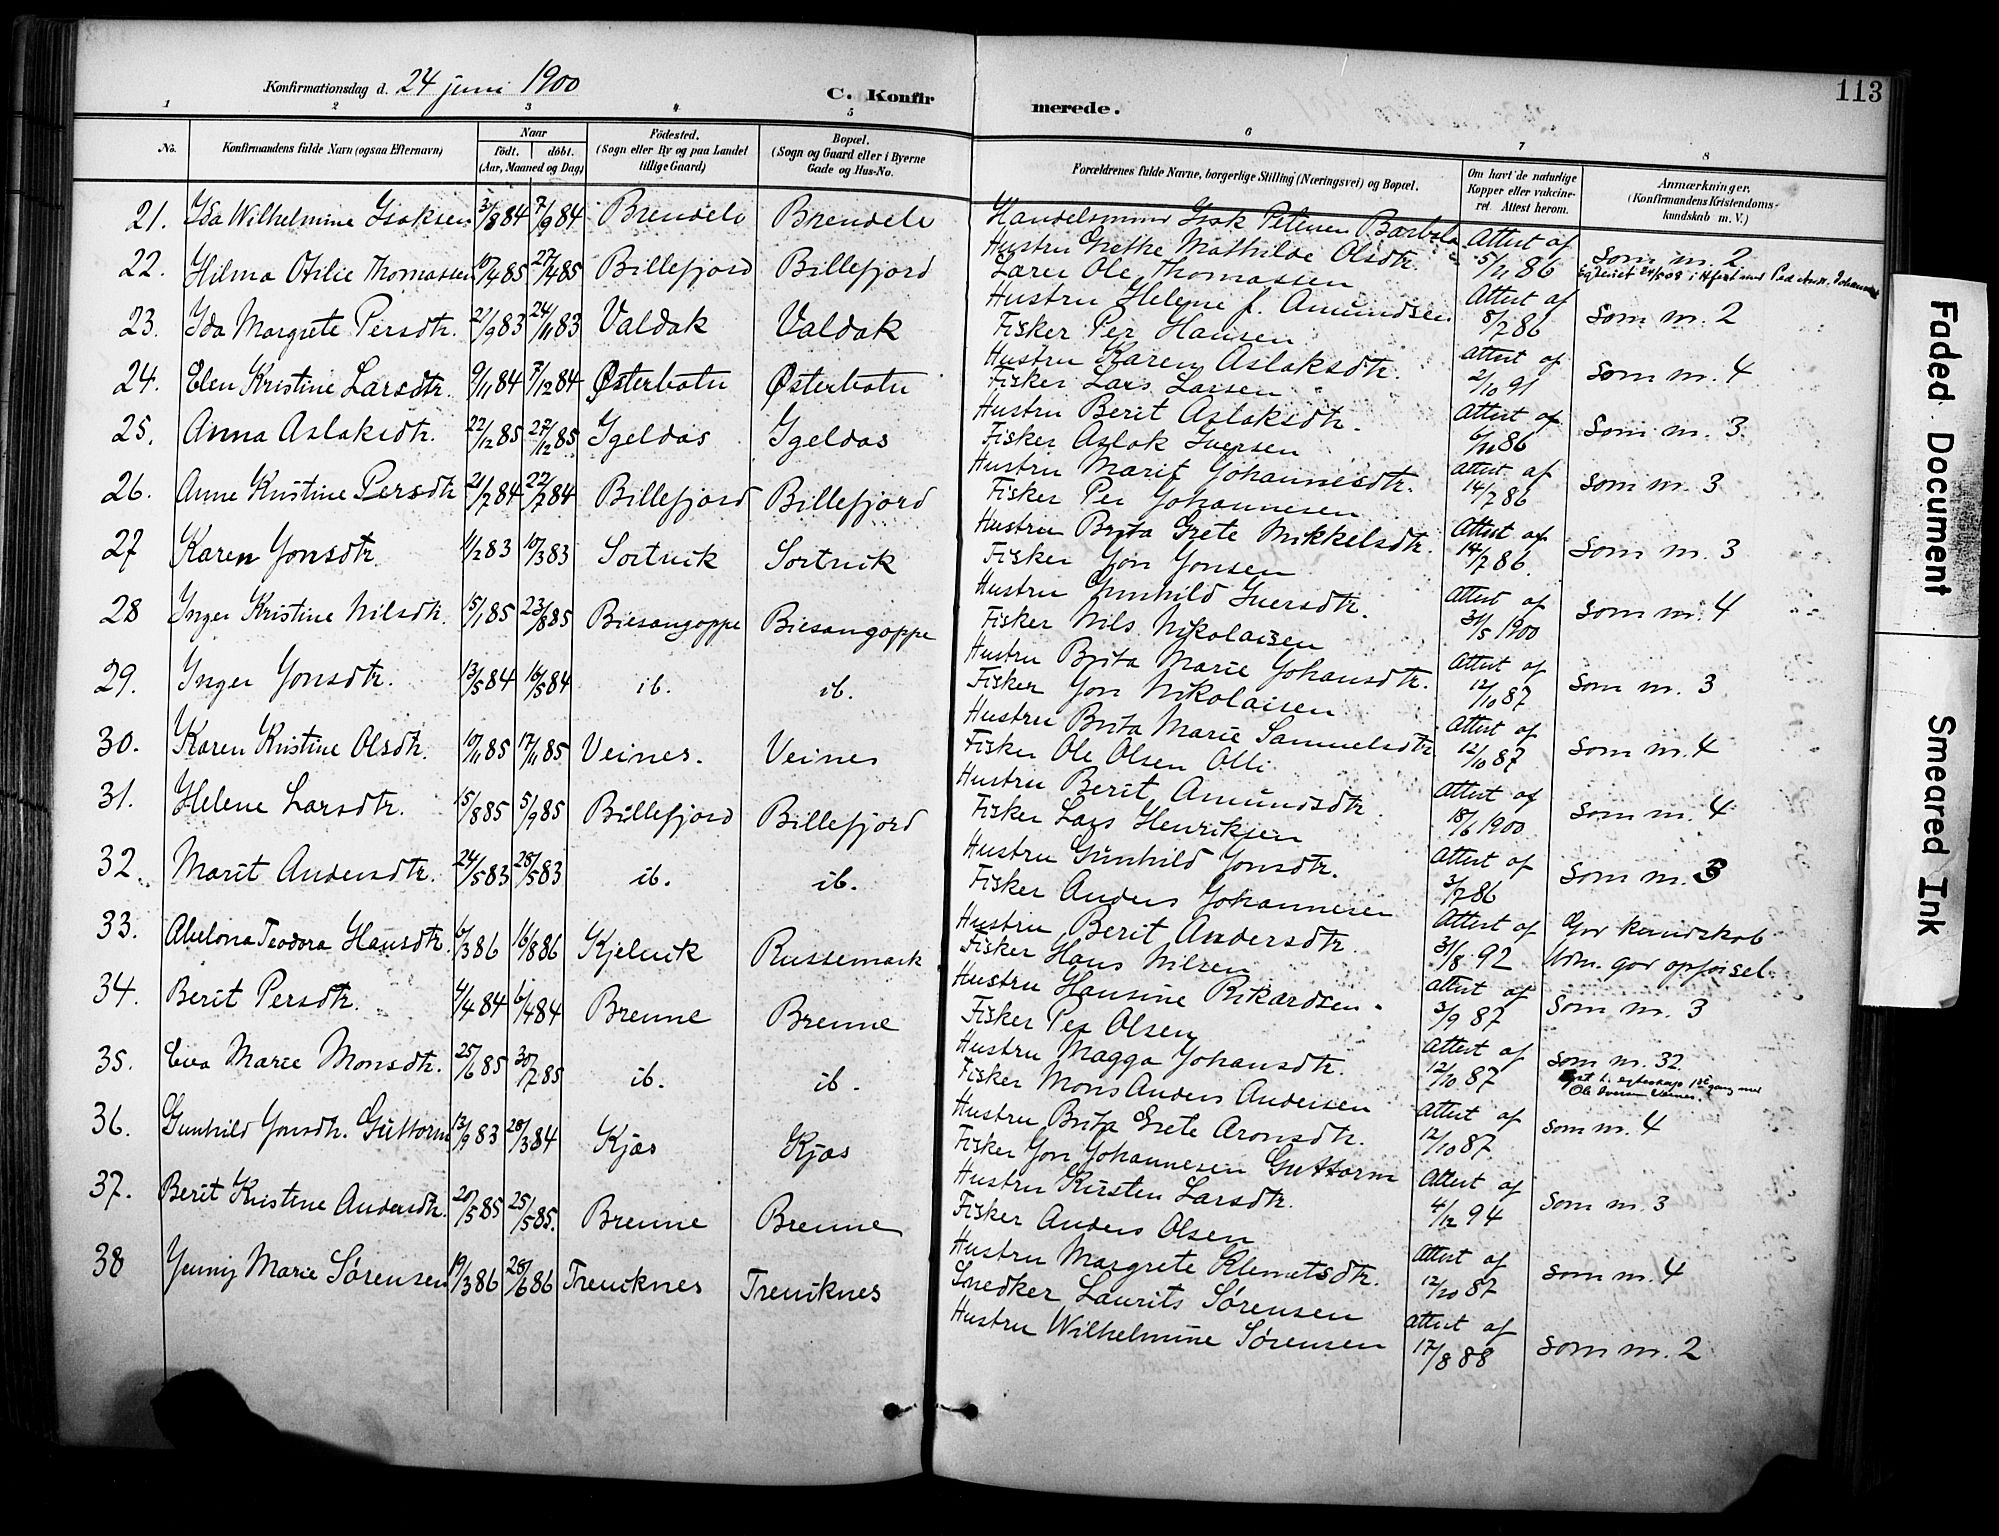 113
Konfirmationsdag d. 24 juni 1900
C. Konfirmerede.
1 2 3 4 5 6 7 8
No.
Konfirmandens fulde Navn (ogsaa Efternavn)
Naar
født. døbt.
(Aar, Maaned og Dag)
Fødested.
(Sogn eller By og paa Landet
tillige Gaard)
Bopæl.
(Sogn og Gaard eller i Byerne
Gade og Hus-No.
Forældrenes fulde Navne, borgerlige Stilling (Næringsvei) og Bopæl.
Om havt de naturlige
Kopper eller vakcine-
ret. Attest herom.
Anmærkninger.
(Konfirmandens Kristendoms-
kundskab m. V.)
21. Ida Wilhelmine Isaksen 3/8 84 7/9 84 Brendelv Brendelv
Handelsmand Isak Petersen
Hustru Grethe Mathilde Olsdtr.
Attest af 5/11 86 Som nr. 2
22. Hilma Otilie Thomassen 10/4 85 27/4 85 Billefjord Billefjord
Lærer Ole Thomassen
Hustru Helene f. Amundsen.
Attest af 8/7 86 Som nr. 2
23. Ida Margrete Persdtr. 21/9 83 24/11 83 Valdak Valdak
Fisker Per Hansen
Hustru Karen Aslaksdtr.
Attest af 2/10 91 Som nr. 4
24. Elen Kristine Larsdtr. 9/11 84 7/12 84 Østerbotn Østerbotn
Fisker Lars Larsen
Hustru Berit Aslaksdtr.
Attest af 6/11 86 Som nr. 3.
25. Anna Aslaksdtr. 22/12 85 27/12 85 Igeldas Igeldas
Fisker Aslak Iversen
Hustru Marit Johannesdtr.
Attest af 14/7 86 Som nr. 3
26. Anne Kristine Persdtr 21/7 84 22/7 84 Billefjord Billefjord
Fisker Per Johannesen
Hustru Brita Grete Mikkelsdtr.
Attest af 14/7 86. Som nr. 3
27 Karen Jonsdtr. 11/2 83 10/3 83 Sortvik Sortvik
Fisker Jon Jonsen
Hustru Gunhild Iversdtr.
Attest af 31/5 1900 Som nr. 4
28 Inger Kristine Nilsdtr. 15/1 85 23/8 85 Biesangoppe Biesangoppe
Fisker Nils Nikolaisen
Hustru Brita Marie Johansdtr.
Attest af 12/10 87 Som nr. 3
29. Inger Jonsdtr. 13/5 84 16/5 84 ib. ib.
Fisker Jon Nikolaisen
Hustru Brita Marie Samuelsdtr
Attest af 12/10 87 Som nr. 4
30. Karen Kristine Olsdtr. 10/11 85 17/11 85 Veines. Veines
Fisker Ole Olsen Olli
Hustru Berit Amundsdtr.
Attest af 18/6 1900. Som nr. 4
31. Helene Larsdtr. 15/8 85 5/9 85 Billefjord Billefjord
Fisker Lars Henriksen
Hustru Gunhild Jonsdtr.
Attest af 3/7 86 Som nr. 3
32. Marit Andersdtr. 24/5 83 28/5 83 ib. ib.
Fisker Anders Johannesen
Hustru Berit Andersdtr.
Attest af 31/8 92 God kundskab
Udm. god opførsel.
33. Abelona Teodora Hansdtr. 6/3 86 16/8 86 Kjelvik Russemark
Fisker Hans Nilsen
Hustru Hansine Rikardsen.
Attest af 3/9 87 Som nr. 3
34. Berit Persdtr. 4/4 84 6/4 84 Brenne Brenne
Fisker Per Olsen
Hustru Magga Johansdtr.
Attest af 12/10 87 Som nr. 32.
35. Eva Marie Monsdtr. 25/6 85 30/7 85 ib. ib.
Fisker Mons Anders Andersen
Hustru Brita Grete Aronsdtr.
Attest af 12/10 87. Som nr. 4
36. Gunhild Jonsdtr. Guttorm 13/9 83 28/3 84 Kjæs Kjæs
Fisker Jon Johannesen Guttorm
Hustru Kirsten Larsdtr.
Attest af 4/12 94 Som nr. 3
37. Berit Kristine Andersdtr. 20/5 85 25/5 85. Brenne Brenne
Fisker Anders Olsen
Hustru Margrete Klemetsdtr.
Attest af 12/10 87 Som nr. 4
38 Jenny Marie Sørensen 19/3 86 20/6 86 Treviknes Treviknes
Snedker Laurits Sørensen
Hustru Wilhelmine Sørensen
Attest af 17/8 88 Som nr. 2
Faded Document
Smeared Ink